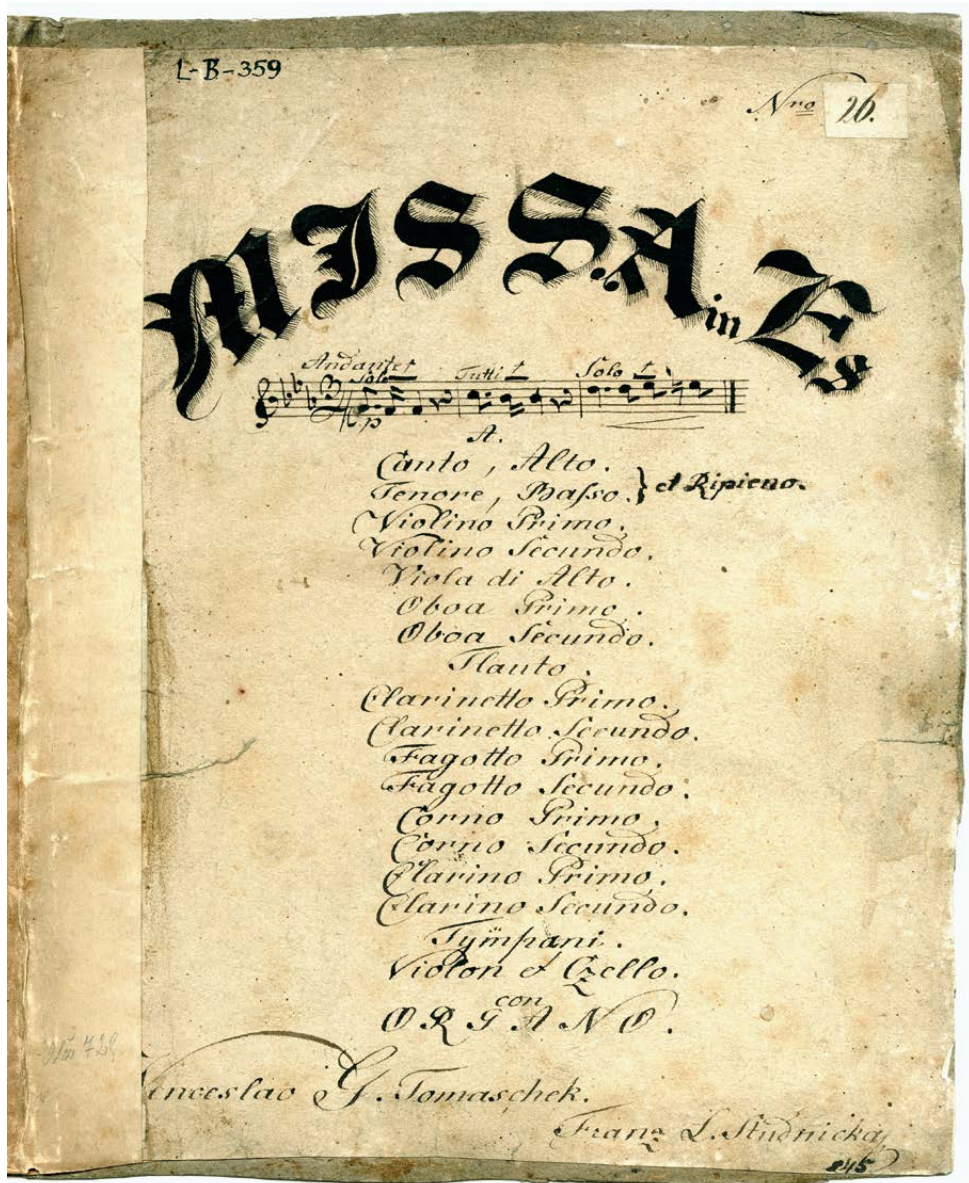 L-B-359
Nro 26.
MISSA in Es
Andante
Solo Tutti Solo
p
A.
Canto, Alto.
Tenore, Basso. } et Ripieno.
Violino Primo.
Violino Secundo.
Viola di Alto.
Oboa Primo.
Oboa Secundo.
Flauto.
Clarinetto Primo.
Clarinetto Secundo.
Fagotto Primo.
Fagotto Secundo.
Corno Primo.
Corno Secundo.
Clarino Primo.
Clarino Secundo.
Tympani.
Violon et Czello.
con
ORGANO.
Vinceslao G. Tomaschek.
Franz L. Studnicka
845